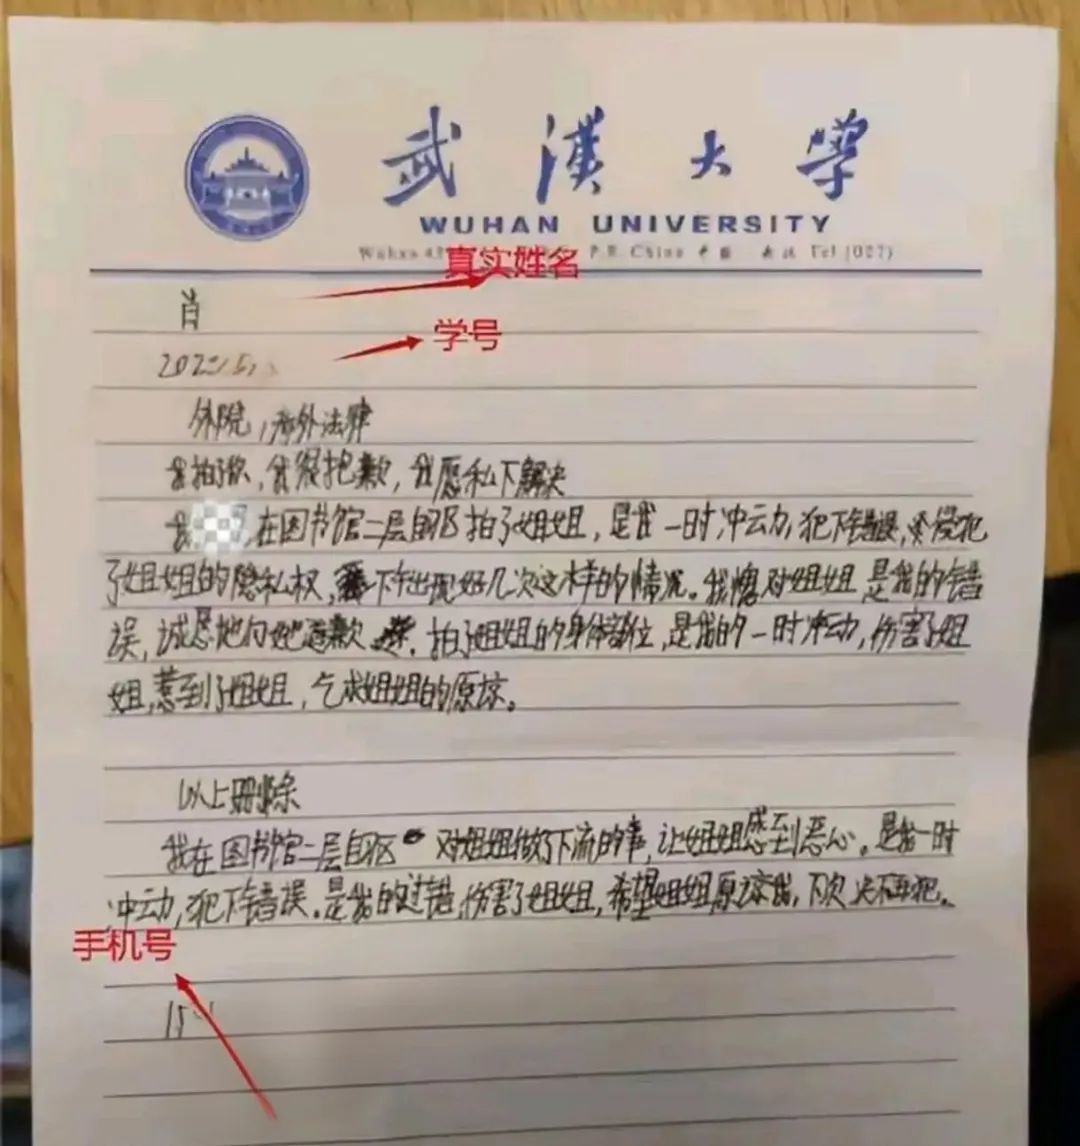 武漢大學
WUHAN UNIVERSITY
P.R. China 中国 Tel (027)
真实姓名
肖
学号
202
外院,涉外法律
我拍了你,我很抱歉,我愿私下解决
我 在图书馆二层自习区拍了姐姐,是我一时冲动,犯下错误,侵犯
了姐姐的隐私权,下午出现好几次这样的情况。我愧对姐姐,是我的错
误,诚恳地向她道歉,拍了姐姐的身体部位,是我的一时冲动,伤害了姐
姐,惹到了姐姐,乞求姐姐的原谅。
以上删除
我在图书馆二层自习区 对姐姐做了下流的事,让姐姐感到恶心。是我一时
冲动,犯下错误。是我的过错,伤害了姐姐,希望姐姐原谅我,下次决不再犯。
手机号
15